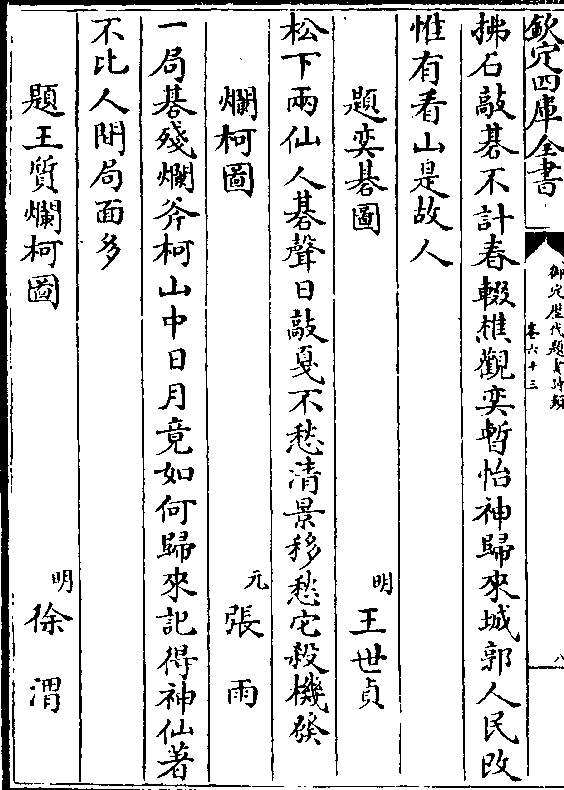 欽定四庫全書
御定歷代題畫詩類
卷六十三
八
拂石敲碁不計春輟樵觀奕暫怡神歸來城郭人民改
惟有看山是故人
題奕碁圖
明 王世貞
松下兩仙人碁聲日敲戛不愁清景移愁它殺機發
爛柯圖
元 張雨
一局碁殘爛斧柯山中日月竟如何歸來記得神仙著
不比人間局面多
題王質爛柯圖
明 徐渭